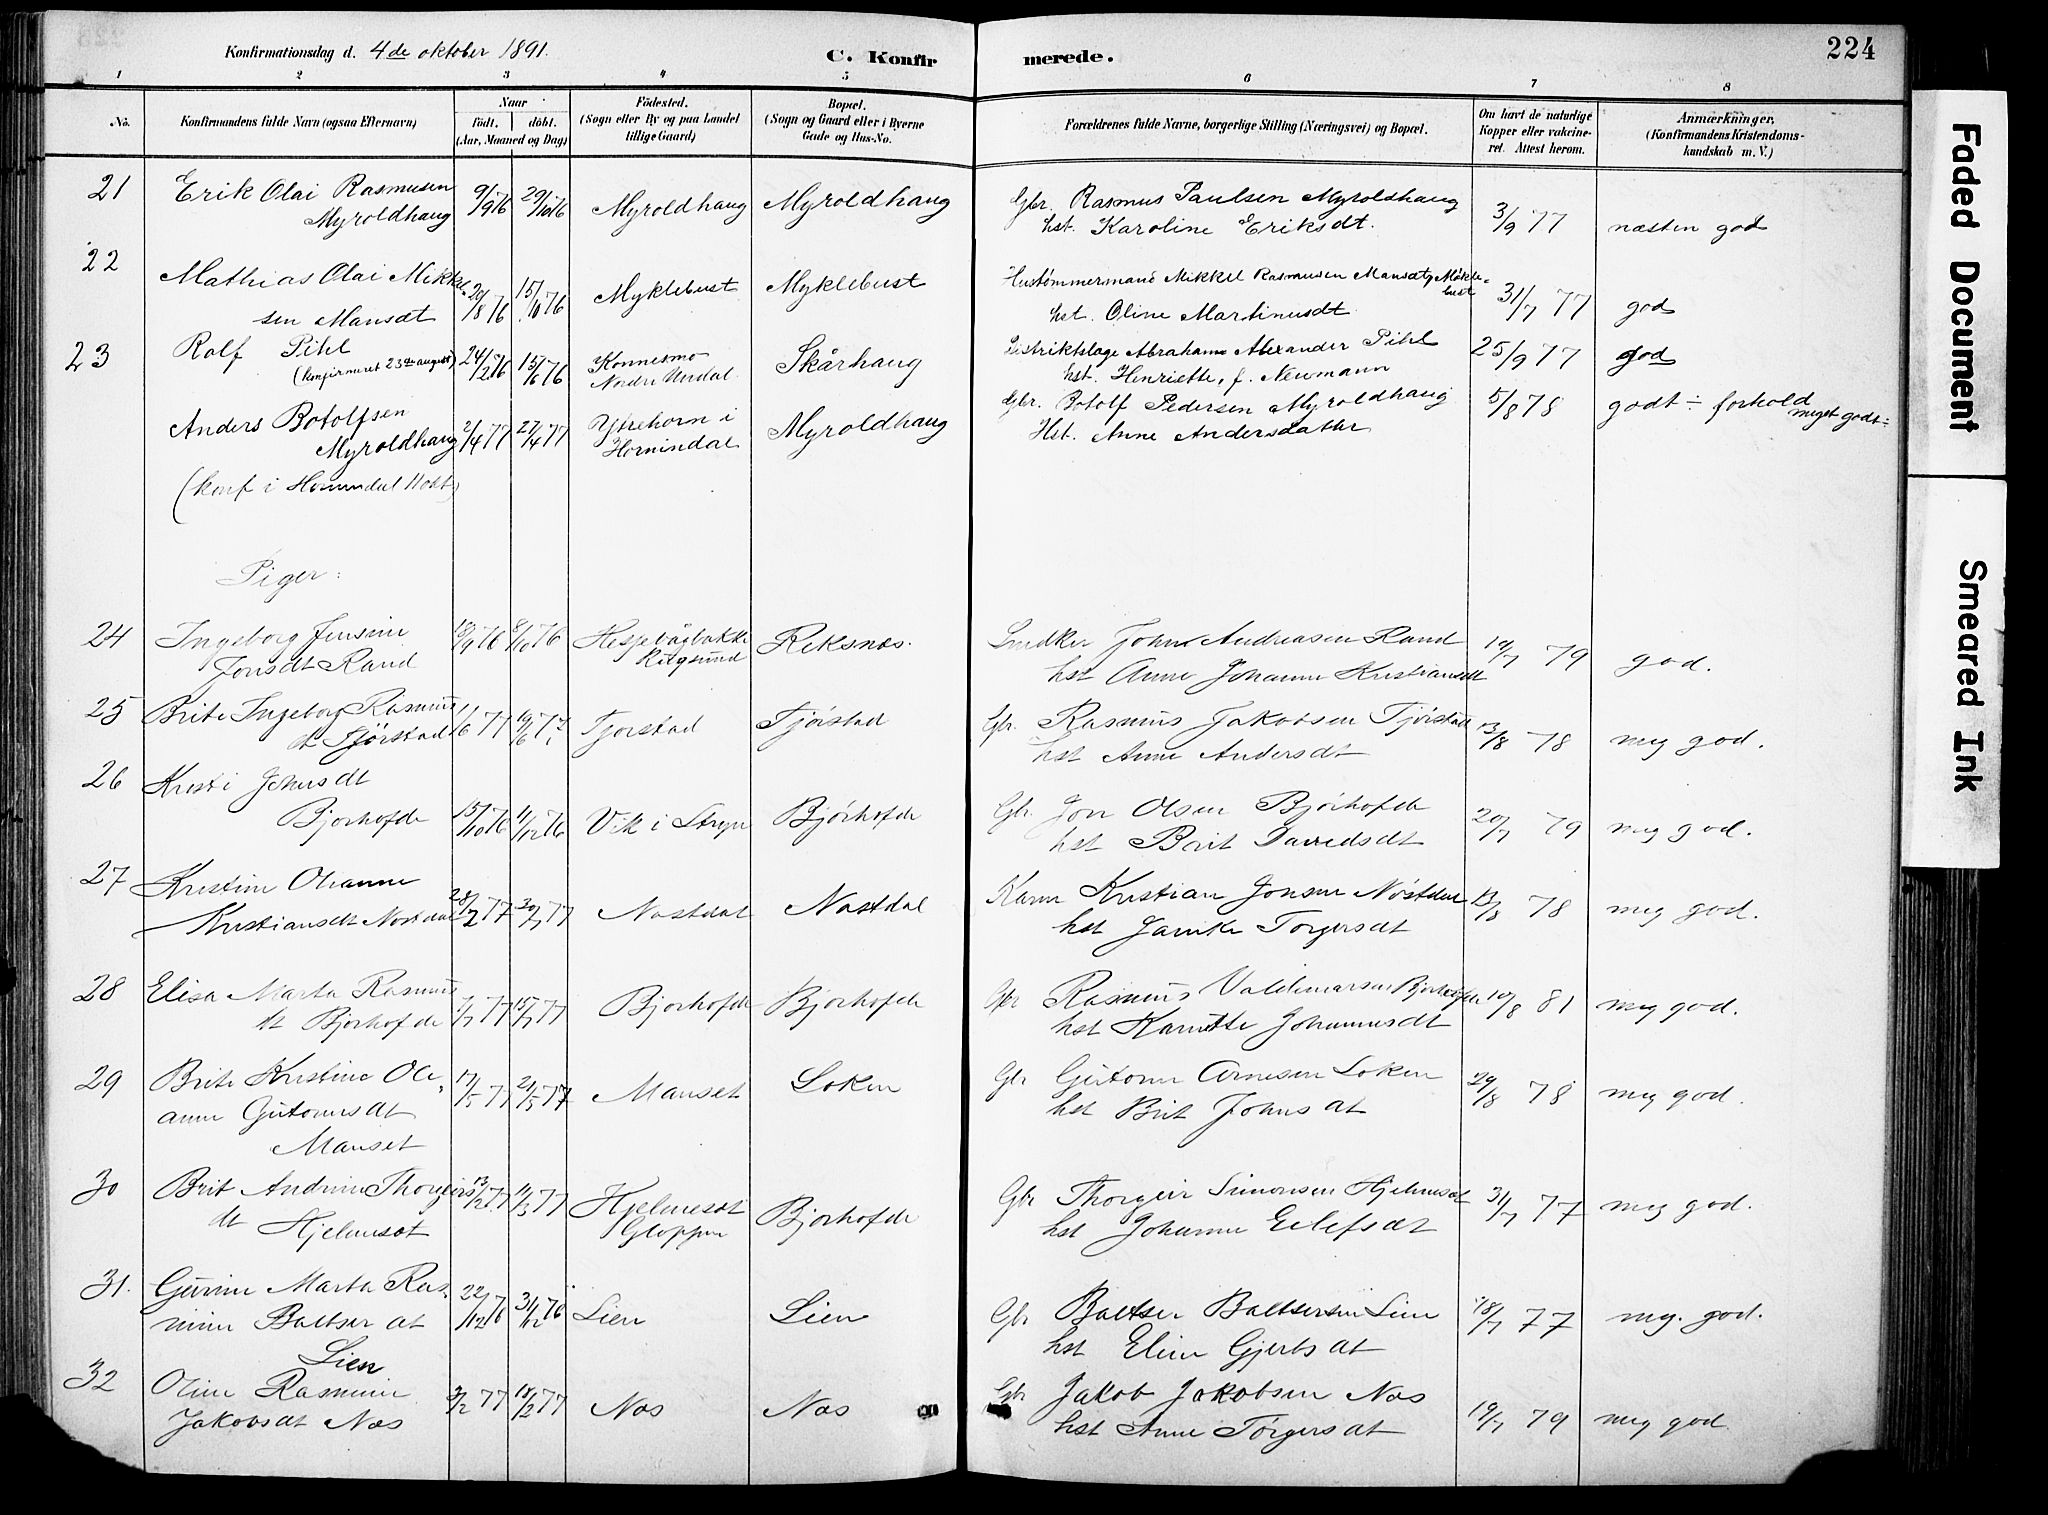 Konfirmationsdag d. 4de oktober 1891.
C. Konfirmerede.
224
1 2 3 4 5 6 7 8
No.
Konfirmandens fulde Navn (ogsaa Efternavn)
Naar
födt. döbt.
(Aar, Maaned og Dag)
Födested.
(Sogn eller By og paa Landet
tillige Gaard)
Bopæl.
(Sogn og Gaard eller i Byerne
Gade og Hus-No.
Forældrenes fulde Navne, borgerlige Stilling (Næringsvei) og Bopæl.
Om havt de naturlige
Kopper eller vakcine-
ret. Attest herom.
Anmærkninger,
(Konfirmandens Kristendoms-
kundskab m. V.)
21 Erik Olai Rasmusen 9/9 76 29/10 76 Myroldhaug Myroldhaug Gbr. Rasmus Paulsen Myroldshaug 3/9 77 næsten god
Myroldhaug hst. Karoline Eriksdt.
22 Mathias Olai Mikkel- 20/8 76 15/10 76 Myklebust Myklebust Hustømmermand Mikkel Rasmusen Mansæt, Mykle- 31/7 77 god
bust
sen Mansæt hst. Oline Martinusdt.
23 Rolf Pihl 24/2 76 15/6 76 Konnesmo Skårhaug Distriktslæge Abraham Alexander Pihl 25/9 77 god
(konfirmeret 23de august) Nordre Undal. hst. Henriette, f. Neumann
Anders Botolfsen 2/4 77 27/4 77 Ytrehorn i Myroldhaug Gbr. Botolf Pedersen Myroldhaug 5/8 78 godt ÷ forhold
meget godt ÷
Myroldhaug Hornindal Hst. Anne Andersdatter
(konf i Hornindal
Piger:
24 Ingeborg Jensine 18/9 76 8/10 76 Reksnæs. John Andreasen Rand 19/7 79 god.
Jonsdt Rand Rugsund hst Anne Johanne Kristiansdt
25 Brite Ingeborg Rasmus 1/6 77 10/6 77 Tjørstad Tjørstad Gbr. Rasmus Jakobsen Tjørstad 13/8 78 meg god.
dt Tjørstad hst Anne Andersdt
26 Kristi Johnsdt
Bjørhofde 15/10 76 11/12 76 Vik i Stryn Bjørhofde Gbr Jon Olsen Bjørhofde 20/7 79 meg god.
hst Brit Davidsdt
27 Kristine Oleanne 28/2 77 Nøstdal Nøstdal Kaarm Kristian Jonsen Nøstdal 13/8 78 meg god.
Kristiansdt Nøstdal hst Jannike Torgersdt
28 Elisa Marta Rasmus 15/7 77 Bjørhofde Bjørhofde Gbr Rasmus Valdemarsen Bjørhofde 10/8 81 meg god.
dt Bjørhofde hst Johannesdt
29 Brite Kristine Ole- 17/5 77 21/5 77 Manset Løken Gbr Guttorm Arnesen Løken 29/8 78 meg god.
anne Guttormsdt hst Brit Johnsdt
Manset
30 Brit Andrine Thorgeirs 13/2 77 11/3 77 Hjelmesæt Bjørhofde Gbr Thorgeir Simonsen Hjelmesæt 31/7 77 meg god.
dt Hjelmesæt Gloppen hst Johanne Eilefsdt
31. Gurine Marta Ras- 22/12 76 31/12 76 Lien Lien Gbr Baltser Baltsersen Lien 18/7 77 meg. god.
mine Baltserdt hst Eline Gjertsdt
Lien
32 Oline Rasmine 3/2 77 18/2 77 Næs Næs Gbr Jakob Jakobsen Næs 19/7 79 meg god
Jakobsdt Næs hst Anne Torgersdt
Faded Document
Smeared Ink